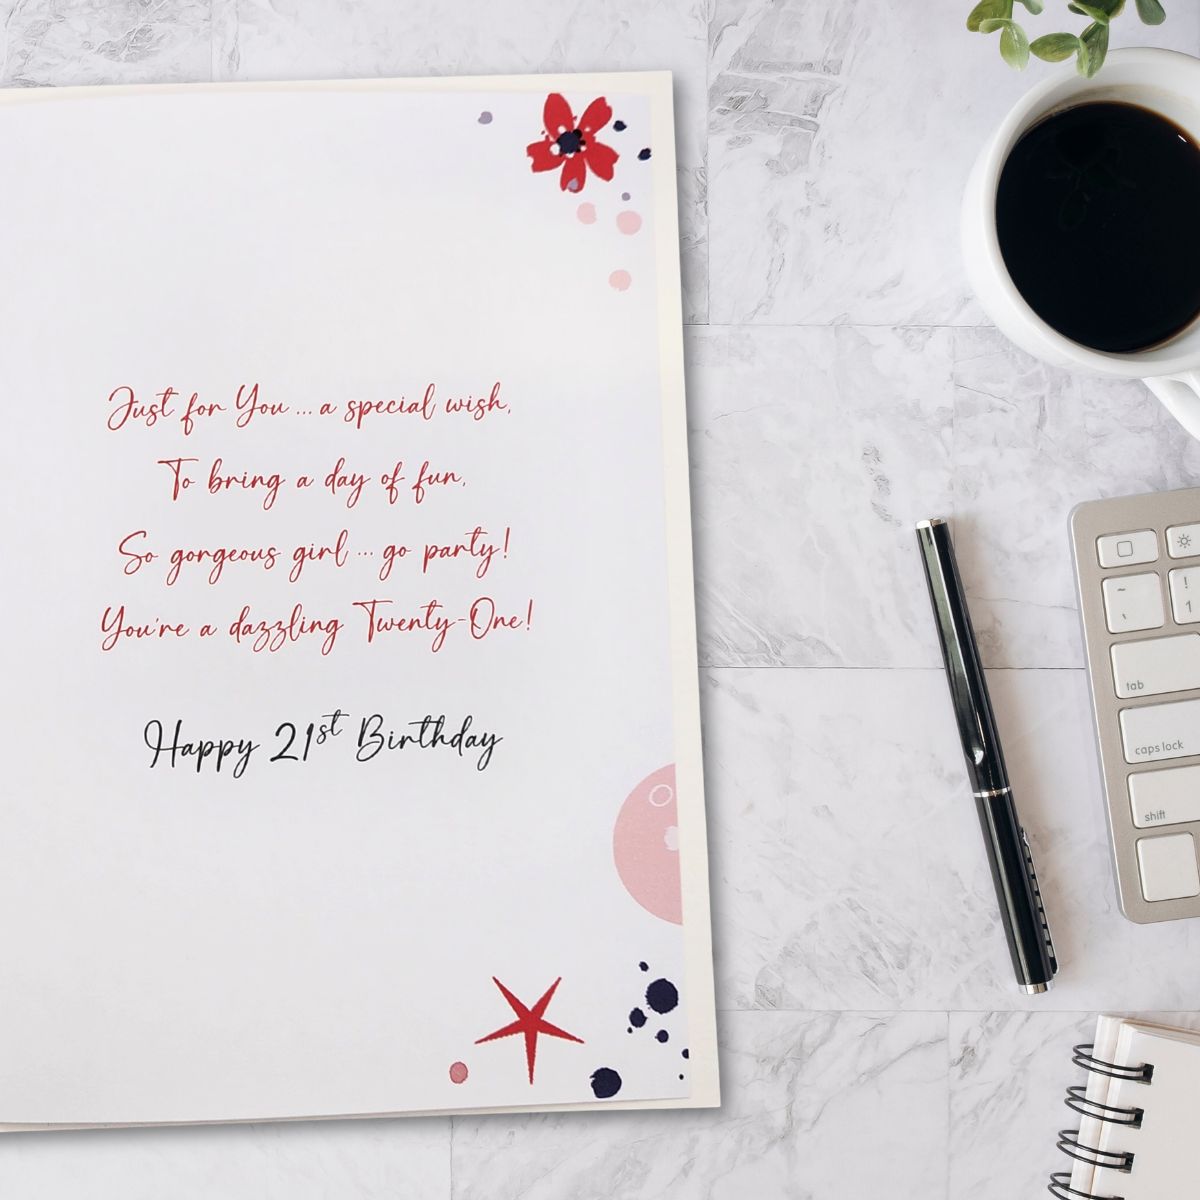 Just for You ... a special wish,
To bring a day of fun,
So gorgeous girl ... go party!
You're a dazzling Twenty-One!
Happy 21st Birthday
~
`
!
1
tab
caps lock
shift